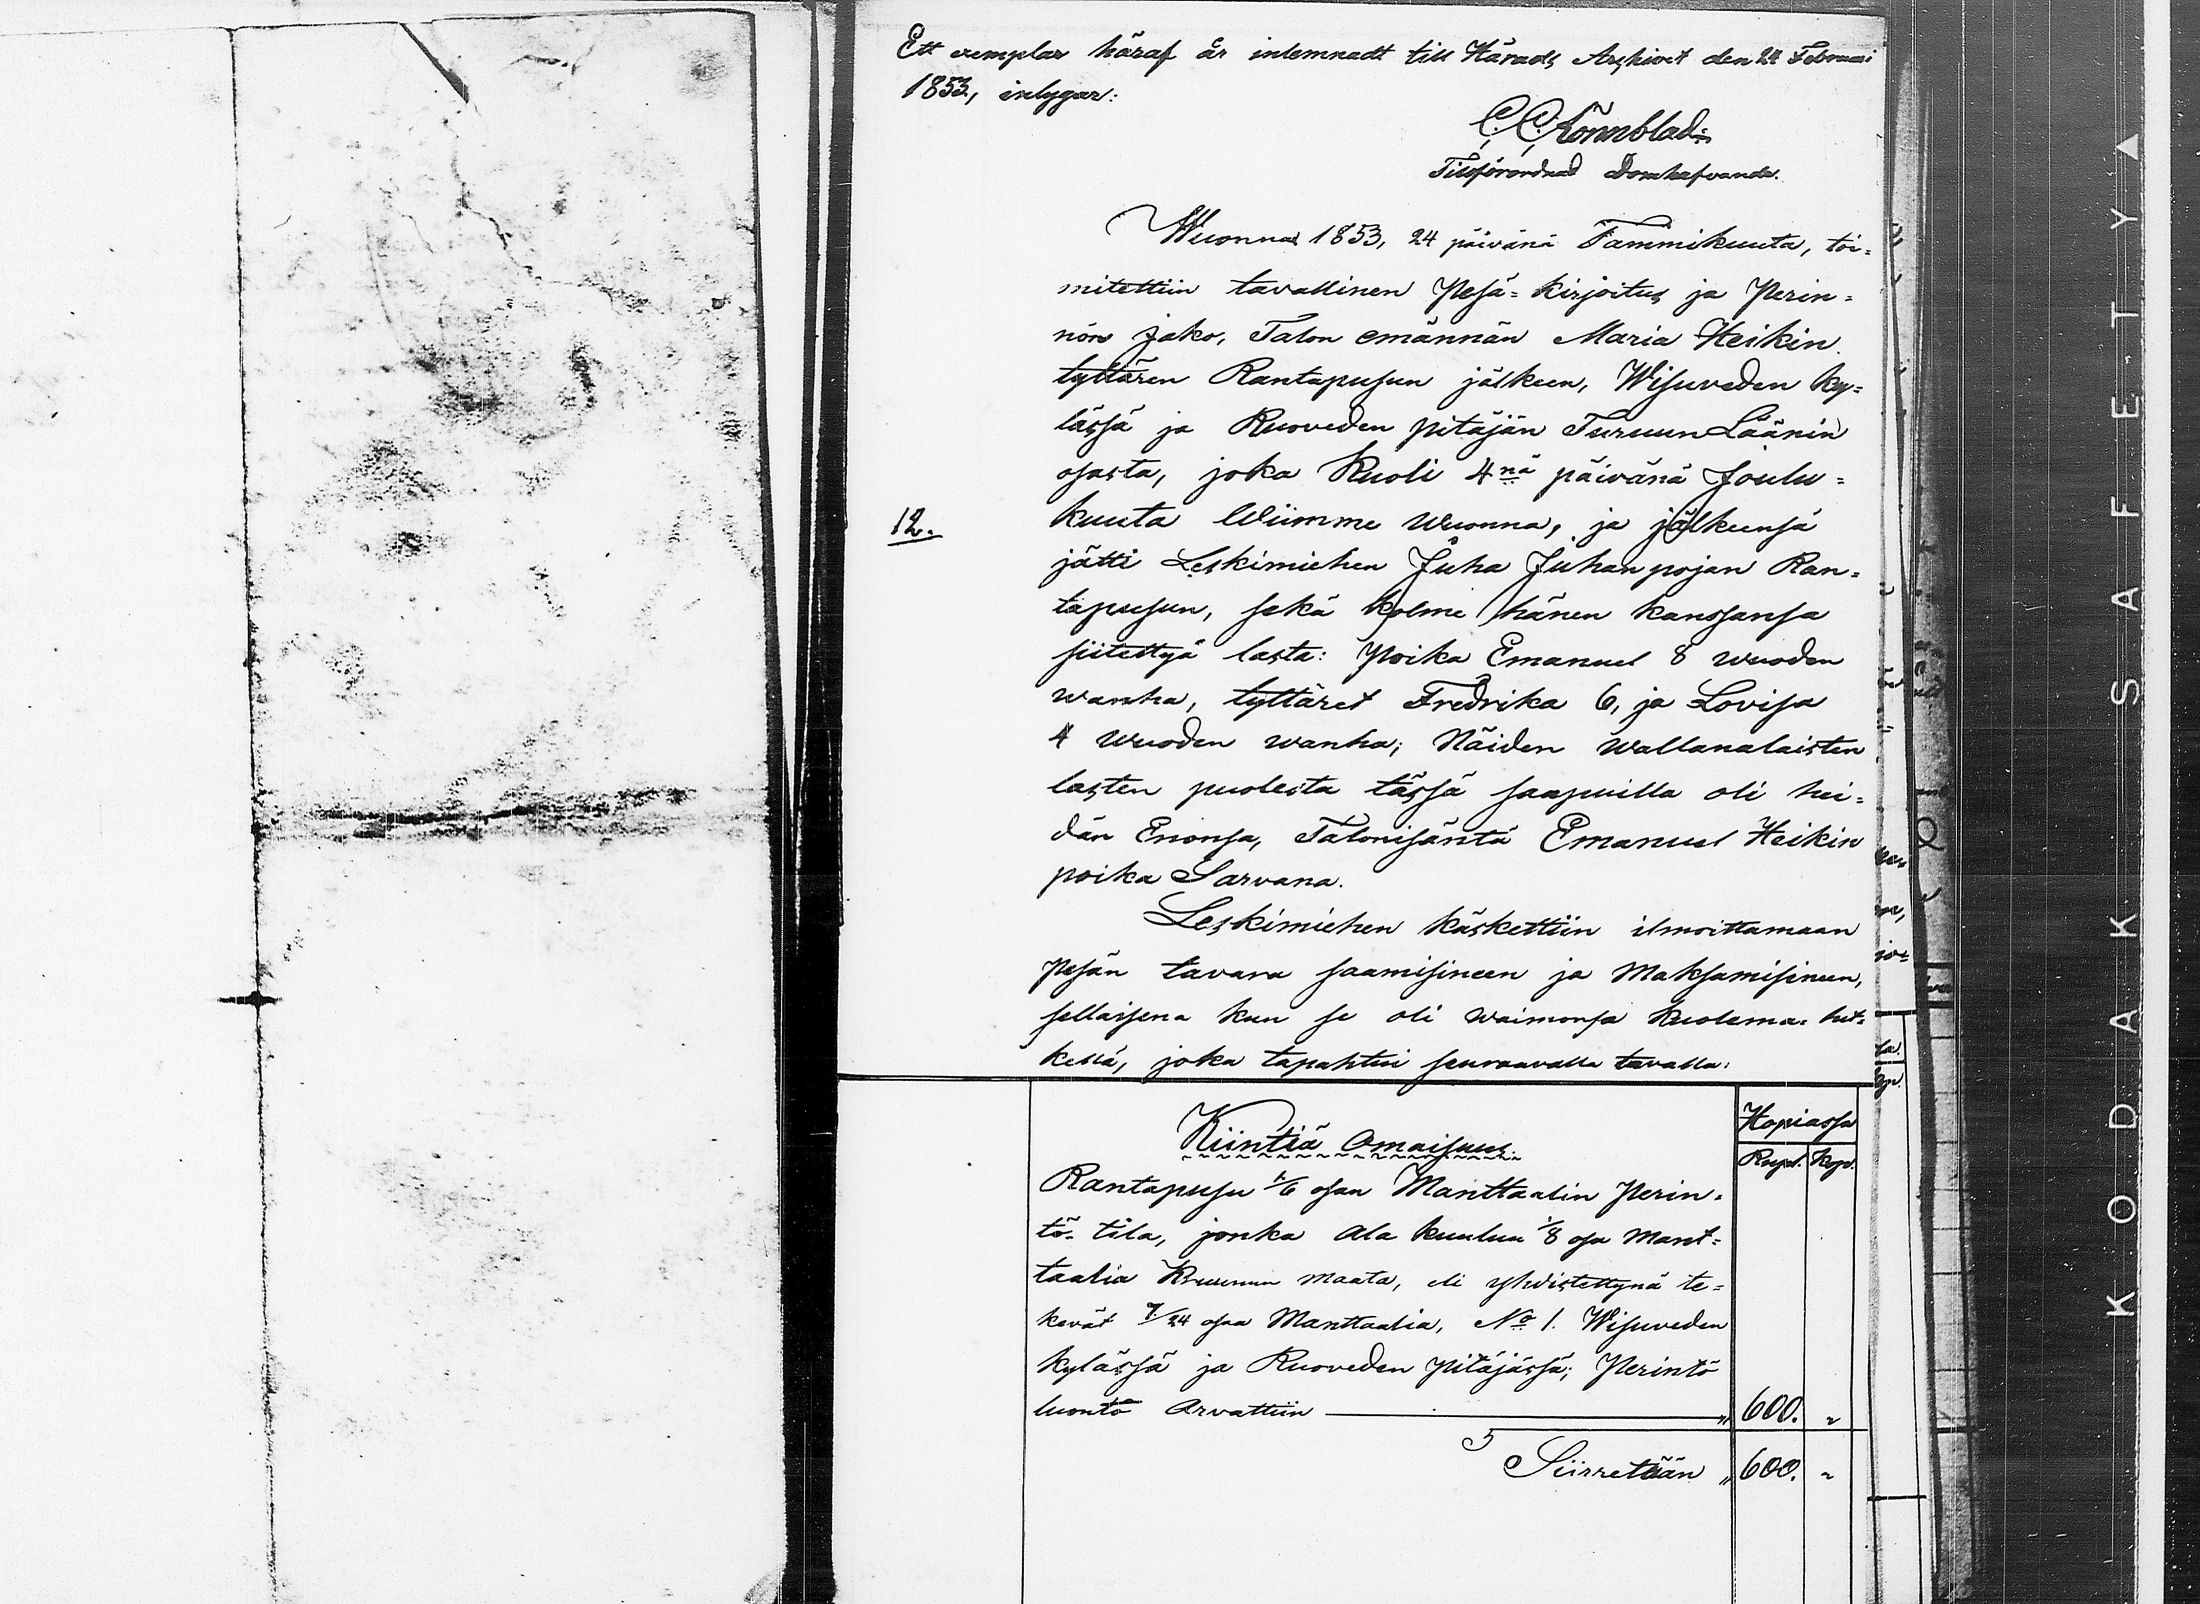 Ett exemplar häraf är inlemnadt till Härads Arkivet den 24 Februari
1853, intygar:
C. C. Rönnblad.
Tillförordnad Domhafvande.
Wuonna 1853, 24 päivänä Tammikuuta, toi=
mitettiin tavallinen Pesä=kirjoitus ja Perin=
nön Jako, Talon emännän Maria Heikin
tyttären Rantapusun jälkeen, Wisuveden ky=
lässä ja Ruoveden pitäjän Turuun Läänin
osasta, joka Kuoli 4nä päivänä Joulu=
12.
kuuta Wiimme wuonna, ja jälkeensä
jätti Leskimiehen Juha Juhanpojan Ran=
tapusun, sekä kolme hänen kanssansa
siitettyä lasta: Poika Emanuel 8 wuoden
wanha, tyttäret Fredrika 6, ja Lovisa
4 wuoden wanha; Näiden wallanalaisten
lasten puolesta tässä saapuilla oli hei=
dän Enonsa, Talonisäntä Emanuel Heikin
poika Sarvana.
Leskimiehen käskettiin ilmoittamaan
Pesän tavara saamisineen ja Maksamisineen,
sellaisena kun se oli waimonsa Kuolema=het=
kellä, joka tapahtui seuraavalla tavalla:
Kiintiä Omaisuus.
Hopiassa
Rupl. Kop.
Rantapusu 1/6 osan Manttaalin Perin=
tö=tila, jonka ala kuuluu 1/8 osa Mant=
taalia Kruunun maata, eli yhdistettynä te=
kevät 7/24 osaa Manttaalia, No 1. Wisuveden
kylässä ja Ruoveden Pitäjässä; Perintö
luontö Arvattiin „ 600. „
Siirretään „ 600. „
KODAK SAFETY